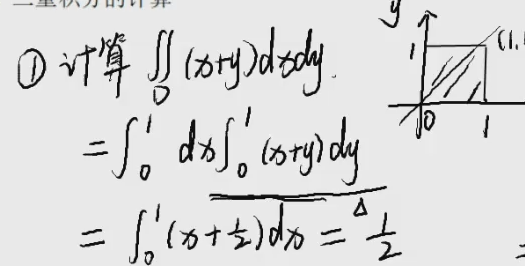 二重积分的计算
① 计算 ∬_D (x+y)dxdy.
= ∫₀¹ dx ∫₀¹ (x+y)dy
= ∫₀¹ (x+½)dx = ½
Δ
y
1
(1,1
0
1